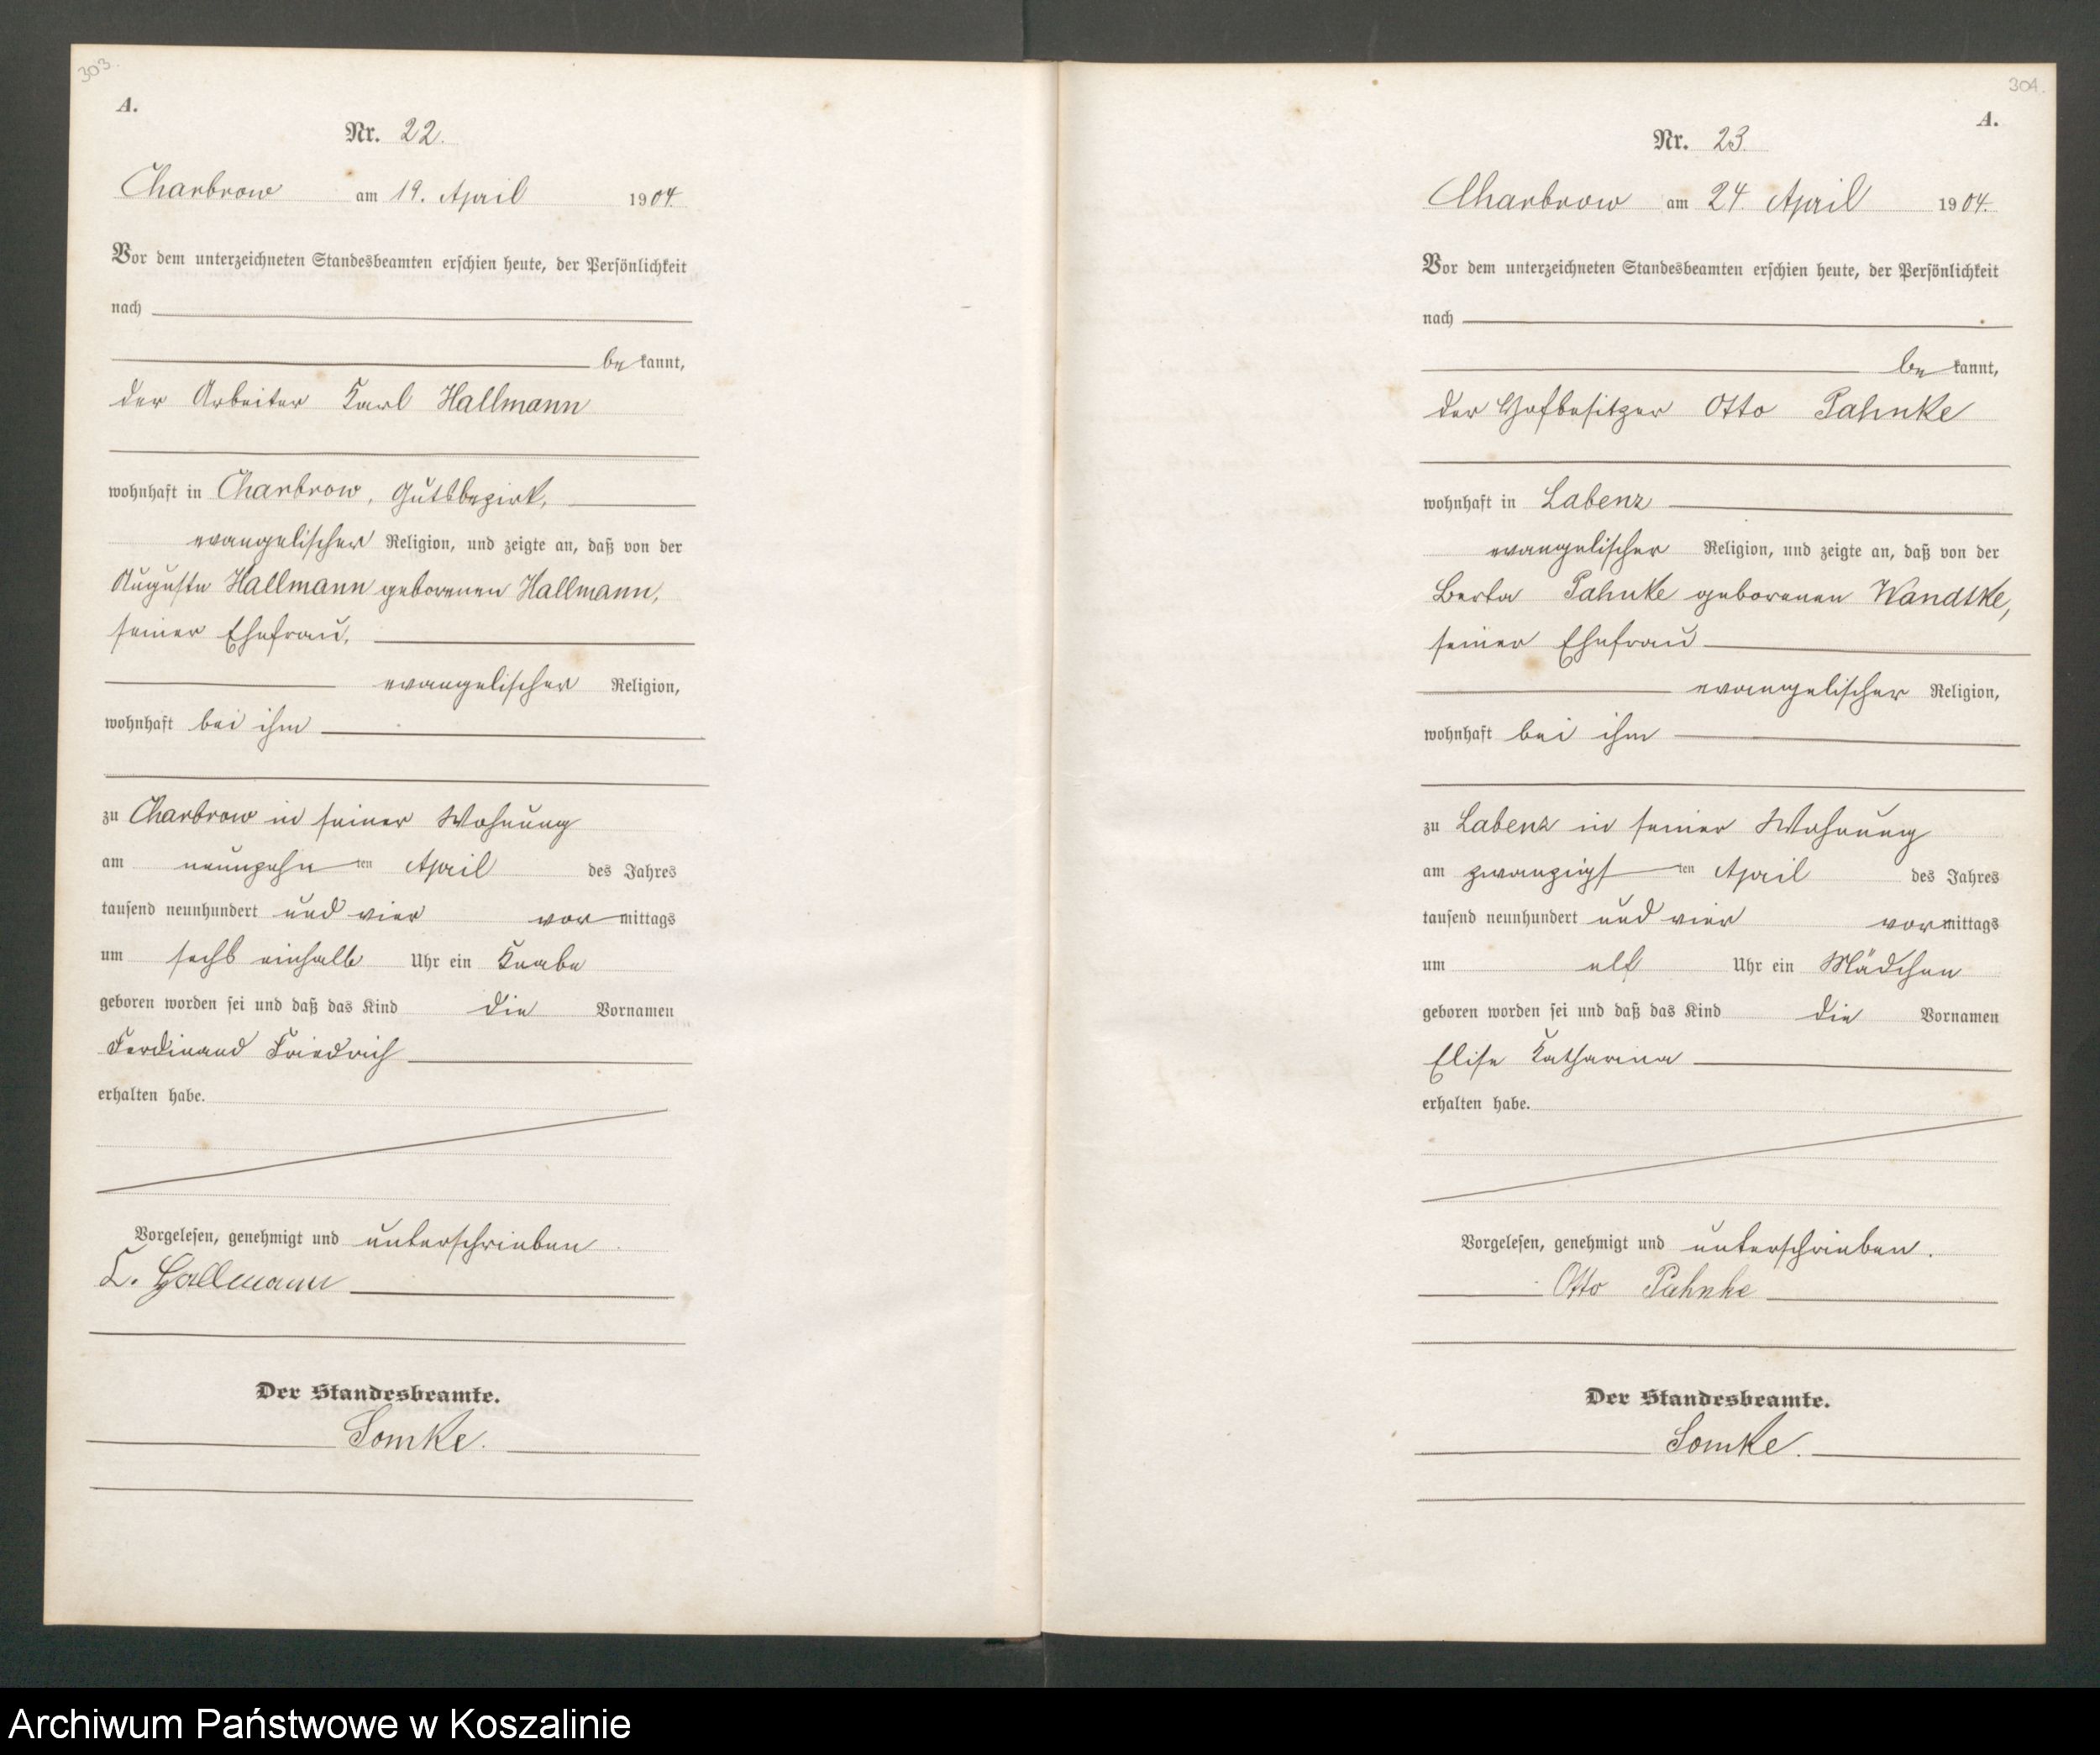 303.
A.
Nr. 22.
Charbrow am 19. April 1904.
Vor dem unterzeichneten Standesbeamten erschien heute, der Persönlichkeit
nach
be kannt,
der Arbeiter Karl Hallmann
wohnhaft in Charbrow, Gutsbezirk,
evangelischer Religion, und zeigte an, daß von der
Auguste Hallmann geborenen Hallmann,
seiner Ehefrau,
evangelischer Religion,
wohnhaft bei ihm
zu Charbrow in seiner Wohnung
am neunzehn ten April des Jahres
tausend neunhundert und vier vor mittags
um sechs einhalb Uhr ein Knabe
geboren worden sei und daß das Kind die Vornamen
Ferdinand Friedrich
erhalten habe.
Vorgelesen, genehmigt und unterschrieben
K. Hallmann
Der Standesbeamte.
Somke.
304.
A.
Nr. 23.
Charbrow am 24. April 1904.
Vor dem unterzeichneten Standesbeamten erschien heute, der Persönlichkeit
nach
be kannt,
der Hofbesitzer Otto Pahnke
wohnhaft in Labenz
evangelischer Religion, und zeigte an, daß von der
Berta Pahnke geborenen Wandtke,
seiner Ehefrau
evangelischer Religion,
wohnhaft bei ihm
zu Labenz in seiner Wohnung
am zwanzigst ten April des Jahres
tausend neunhundert und vier vor mittags
um elf Uhr ein Mädchen
geboren worden sei und daß das Kind die Vornamen
Elise Katharina
erhalten habe.
Vorgelesen, genehmigt und unterschrieben.
Otto Pahnke
Der Standesbeamte.
Somke.
Archiwum Państwowe w Koszalinie